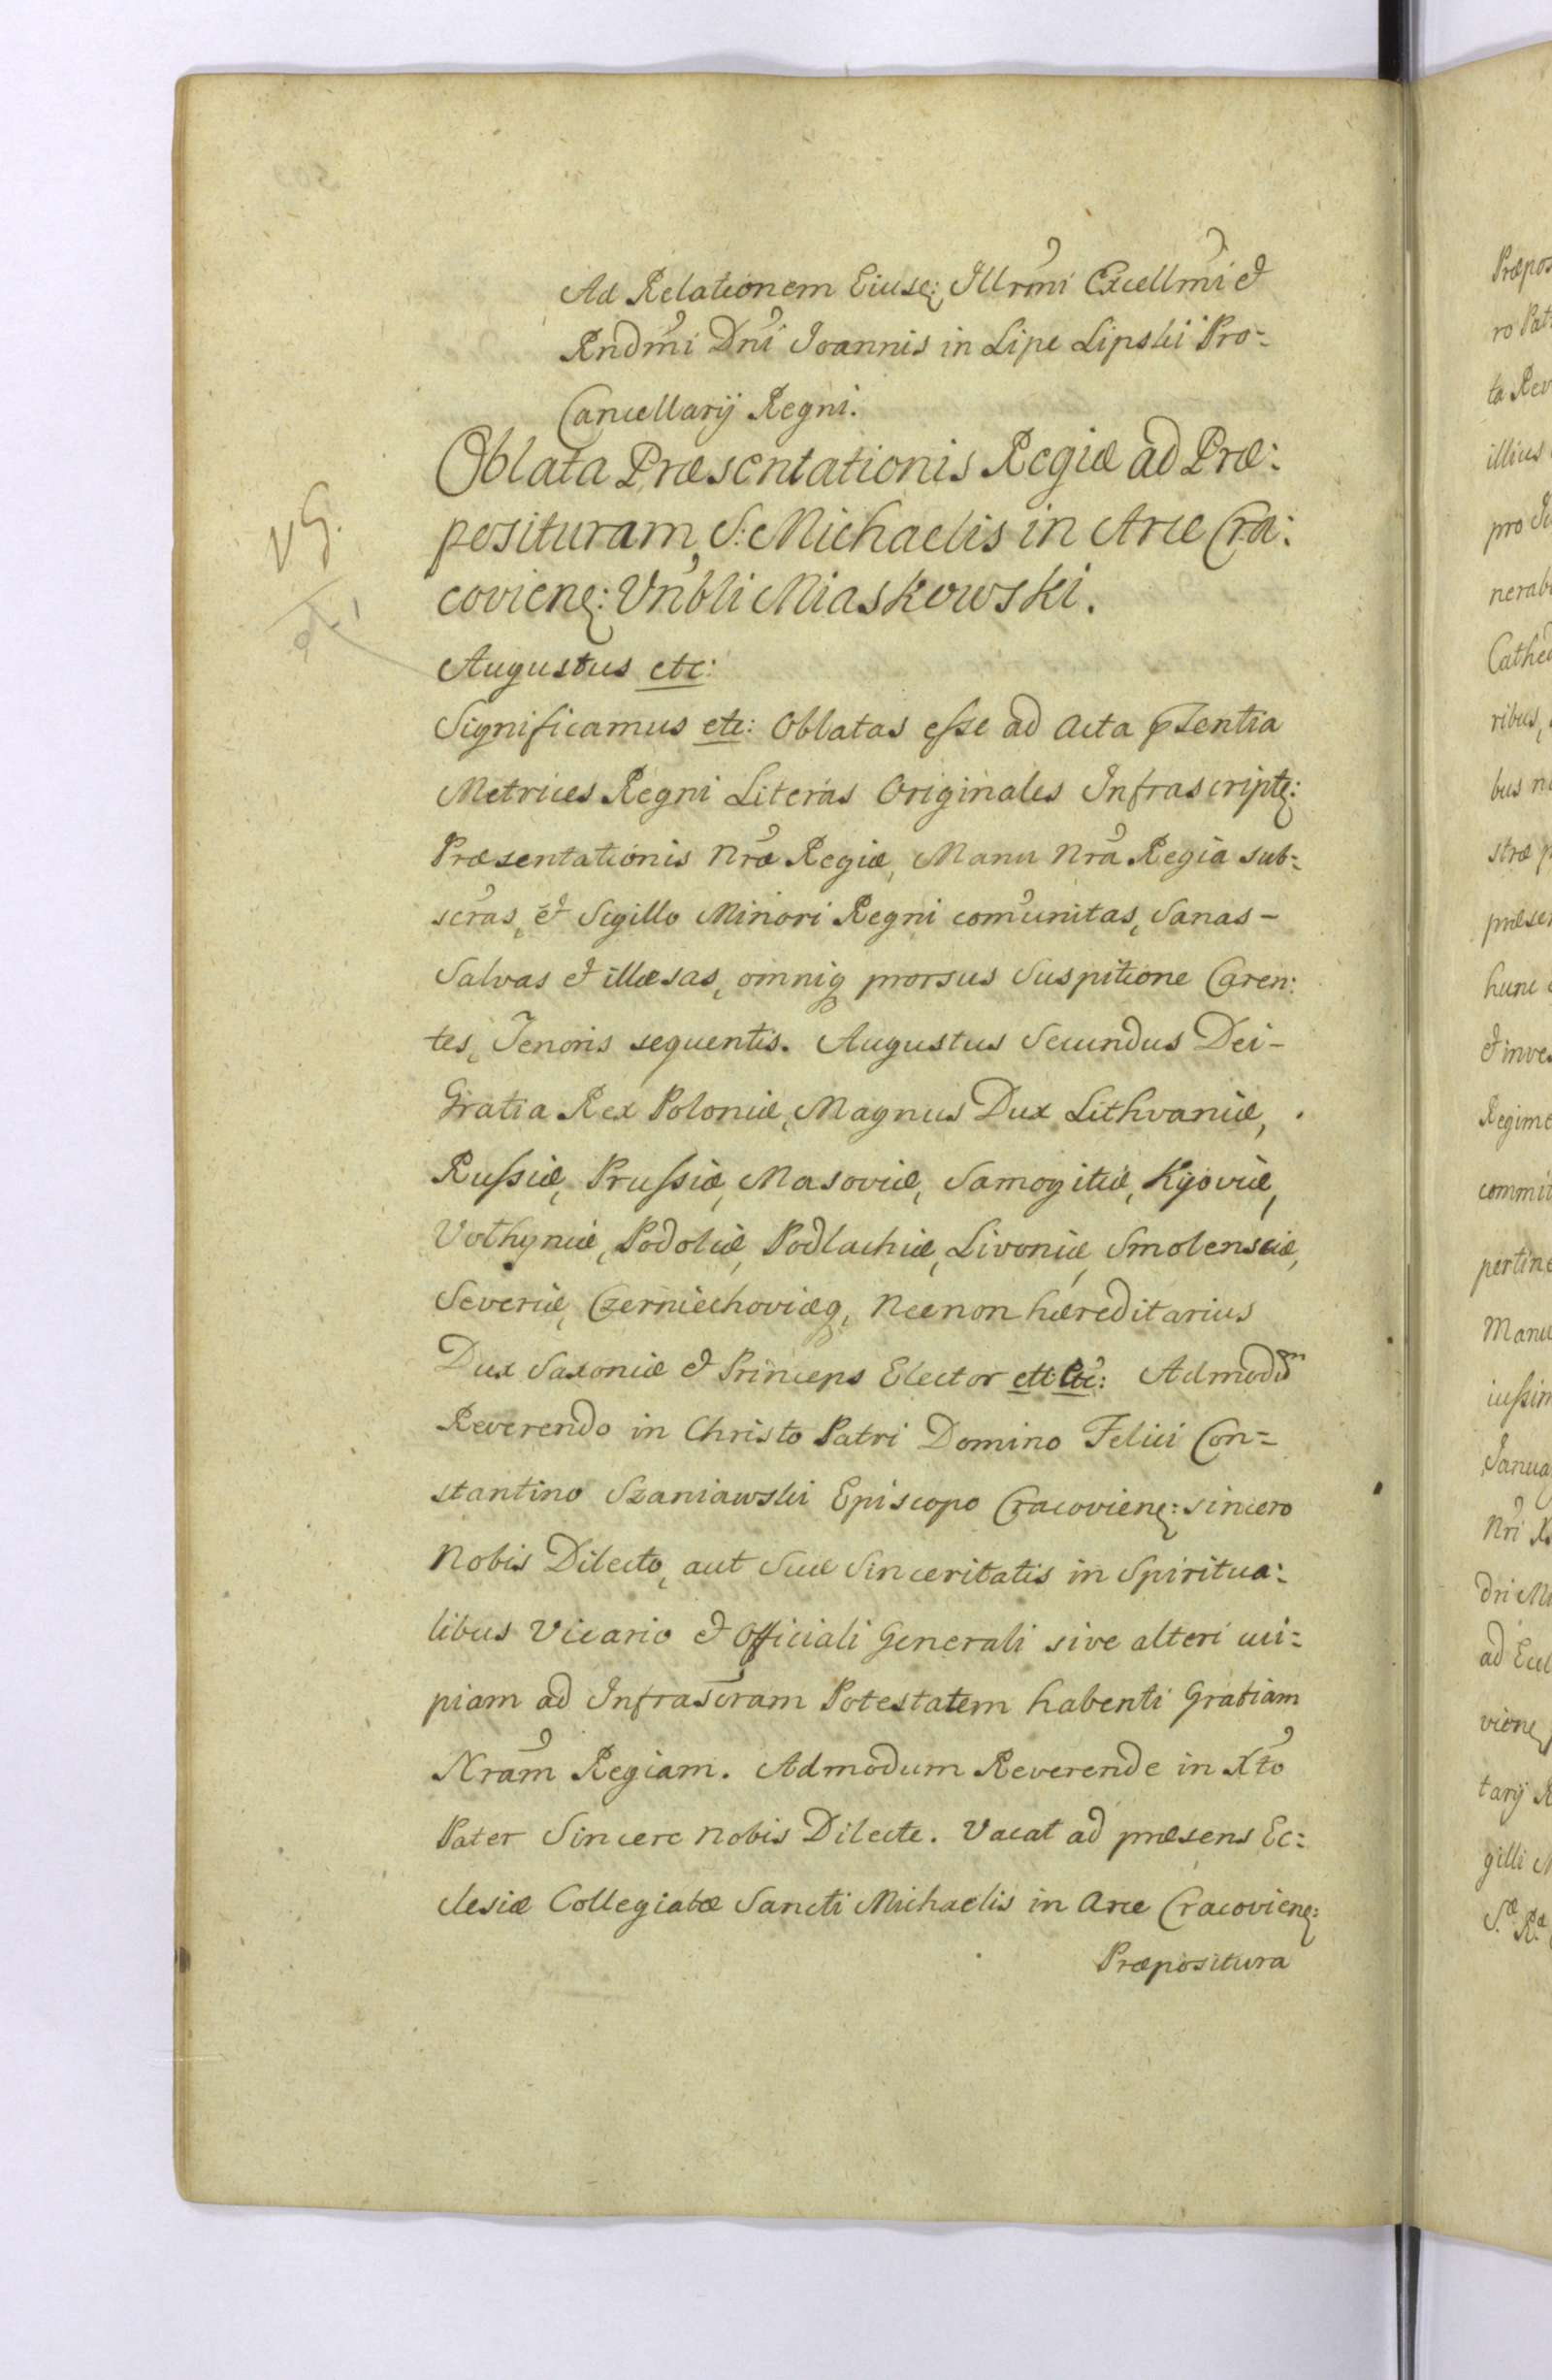 Ad Relationem Eiusq: Illrmi Excellmi et
Rndmi Dni Joannis in Lipe Lipski Pro=
Cancellarij Regni.
Oblata Præsentationis Regiæ ad Præ:
posituram S: Michaelis in Arce Cra:
covienq: Vnbli Miaskowski.
Augustus etc:
Significamus etc: Oblatas esse ad Acta
Metrices Regni Literas Originales Infrascriptq:
Præsentationis Nræ Regiæ, Manu Nra Regia sub=
scras, et Sigillo Minori Regni comunitas, Sanas-
Salvas et illæsas, omniq prorsus Suspitione Caren:
tes, Tenoris sequentis. Augustus Secundus Dei-
Gratia Rex Poloniæ, Magnus Dux Lithvaniæ,
Russiæ, Prussiæ, Masoviæ, Samogitiæ, Kijoviæ,
Volhyniæ, Podoliæ, Podlachiæ, Livoniæ, Smolensciæ,
Severiæ, Czerniechoviæq, Necnon hæreditarius
Dux Saxoniæ et Princeps Elector etc etc: Admodum
Reverendo in Christo Patri Domino Felici Con=
stantino Szaniawski Episcopo Cracovienq: sincero
Nobis Dilecto, aut Suæ Sinceritatis in Spiritua:
libus Vicario et Officiali Generali sive alteri cui=
piam ad Infrascram Potestatem habenti Gratiam
Nram Regiam. Admodum Reverende in Xto
Pater Sincere Nobis Dilecte. Vacat ad præsens Ec:
clesiæ Collegiatæ Sancti Michaelis in Arce Cracovienq:
Præpositura
VG.
Præpos
ro Pat
ta Rev
illius
pro
nerab
Cathed
ribus,
bus n
stræ p
præsen
hunc
et inve
Regim
commit
pertine
Manu
iussim
Janua
Nri
dri
ad Eccl
vienq
tarij
gilli